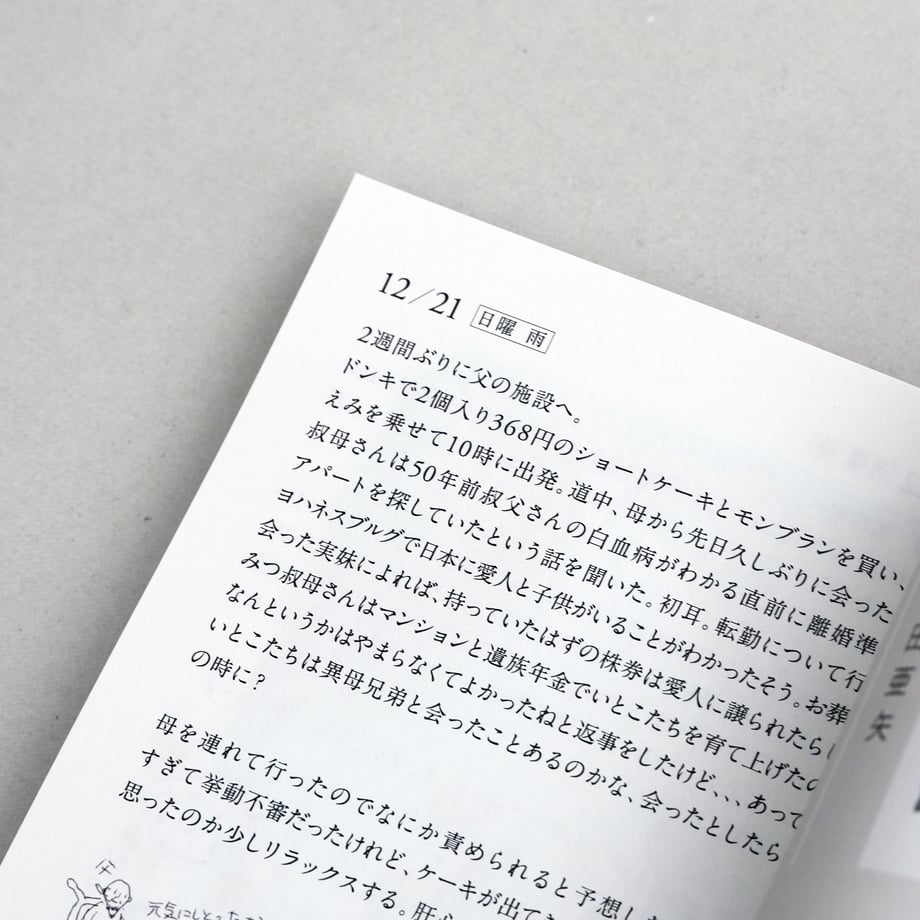 12/21 日曜 雨
2週間ぶりに父の施設へ。
ドンキで2個入り368円のショートケーキとモンブランを買い、
えみを乗せて10時に出発。道中、母から先日久しぶりに会った
叔母さんは50年前叔父さんの白血病がわかる直前に離婚準
アパートを探していたという話を聞いた。初耳。転勤について行
ヨハネスブルグで日本に愛人と子供がいることがわかったそう。お葬
会った実妹によれば、持っていたはずの株券は愛人に譲られたらし
みつ叔母さんはマンションと遺族年金でいとこたちを育て上げたの
なんというかはやまらなくてよかったねと返事をしたけど、、、あって
いとこたちは異母兄弟と会ったことあるのかな、会ったとしたら
の時に？
母を連れて行ったのでなにか責められると予想し
すぎて挙動不審だったけれど、ケーキが出て
思ったのか少しリラックスする。肝
元気にしとった
亜矢